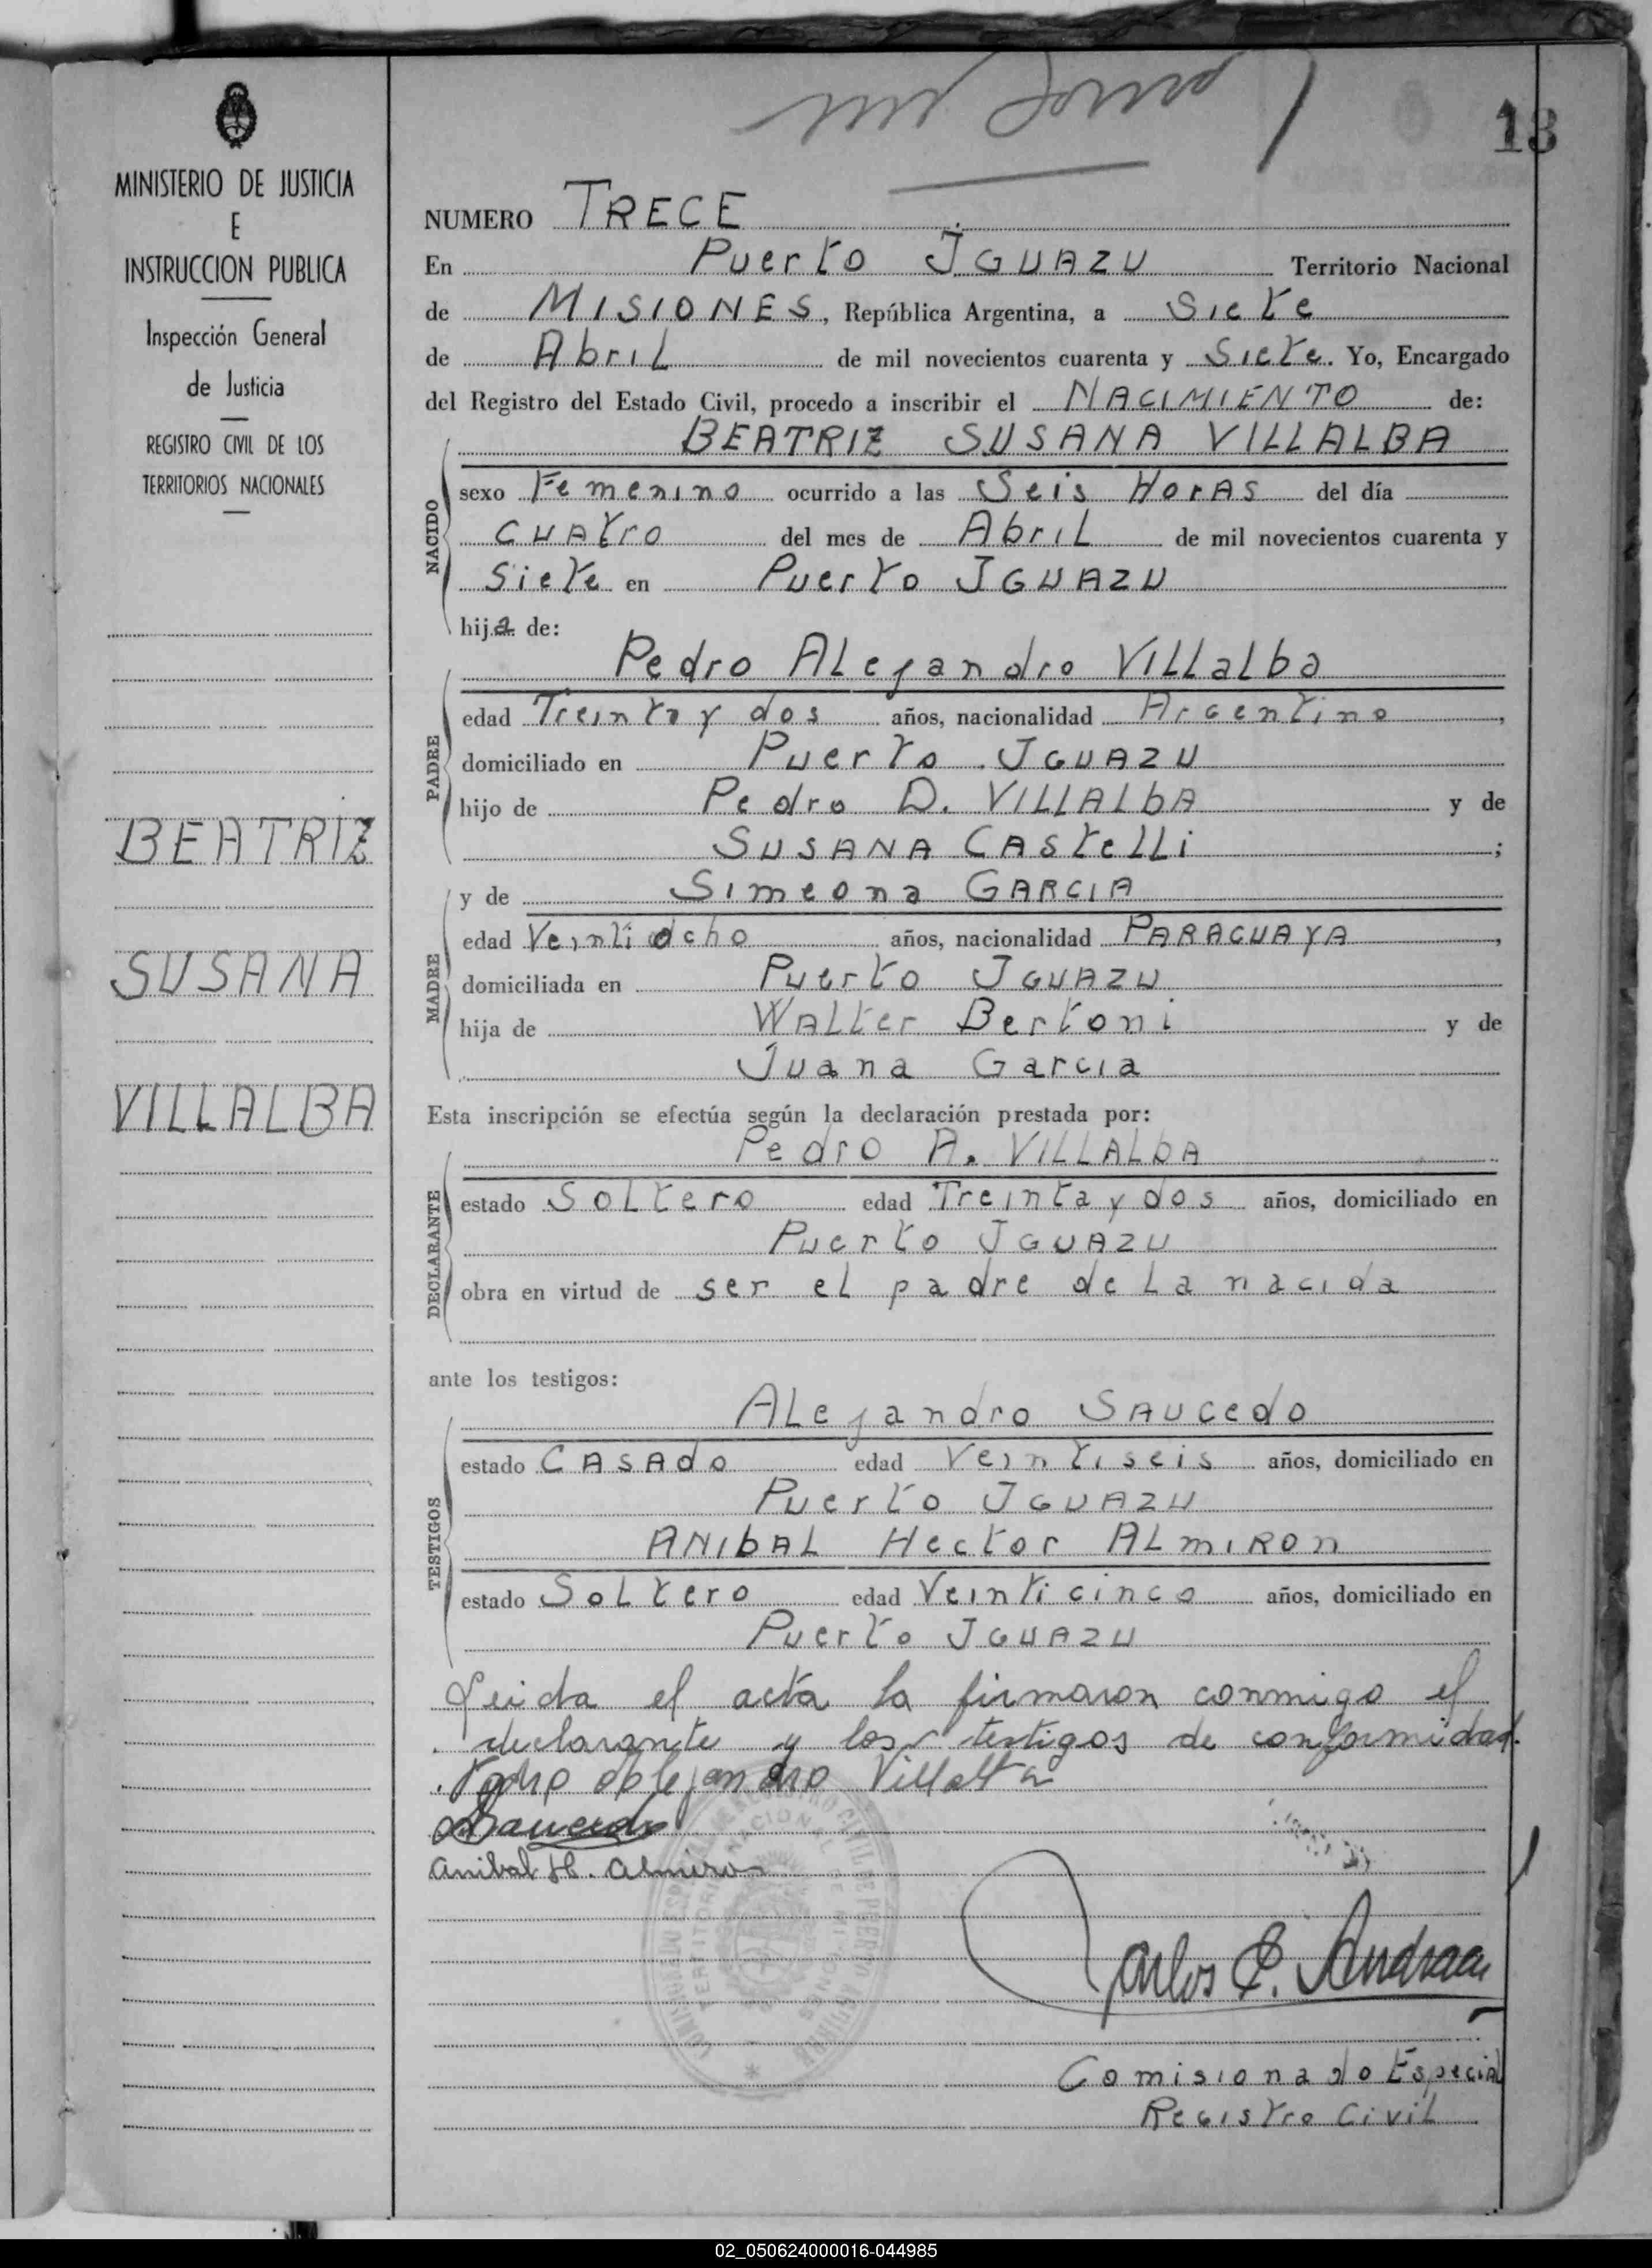 13
MINISTERIO DE JUSTICIA
E
INSTRUCCION PUBLICA
Inspección General
de Justicia
REGISTRO CIVIL DE LOS
TERRITORIOS NACIONALES
BEATRIZ
SUSANA
VILLALBA
NUMERO TRECE
En Puerto IGUAZU Territorio Nacional
de MISIONES, República Argentina, a Siete
de Abril de mil novecientos cuarenta y Siete. Yo, Encargado
del Registro del Estado Civil, procedo a inscribir el NACIMIENTO de:
BEATRIZ SUSANA VILLALBA
NACIDO
sexo Femenino ocurrido a las Seis HorAS del día
CUAtro del mes de AbriL de mil novecientos cuarenta y
Siete en Puerto IGUAZU
hija de:
Pedro ALejandro VILLalba
PADRE
edad Treinta y dos años, nacionalidad Argentino,
domiciliado en Puerto IGUAZU
hijo de Pedro D. VILLALbA y de
SUSANA CAStelli;
y de Simeona GARCIA
MADRE
edad Veintiocho años, nacionalidad PARAGUAYA,
domiciliada en Puerto IGUAZU
hija de WALter Bertoni y de
Juana Garcia
Esta inscripción se efectúa según la declaración prestada por:
Pedro A. VILLALbA
DECLARANTE
estado SoLtero edad Treinta y dos años, domiciliado en
Puerto IGUAZU
obra en virtud de ser el padre de La nacida
ante los testigos:
ALejandro SAUcedo
TESTIGOS
estado CASAdo edad Veintiseis años, domiciliado en
Puerto IGUAZU
ANIbAL Hector ALmIRon
estado SoLtero edad Veinticinco años, domiciliado en
Puerto IGUAZU
Leida el acta la firmaron conmigo el
declarante y los testigos de conformidad.
Pedro Alejandro Villalba
Saucedo
Anibal H. Almiron
Carlos E.
Comisionado Especial
Registro Civil
02_050624000016-044985